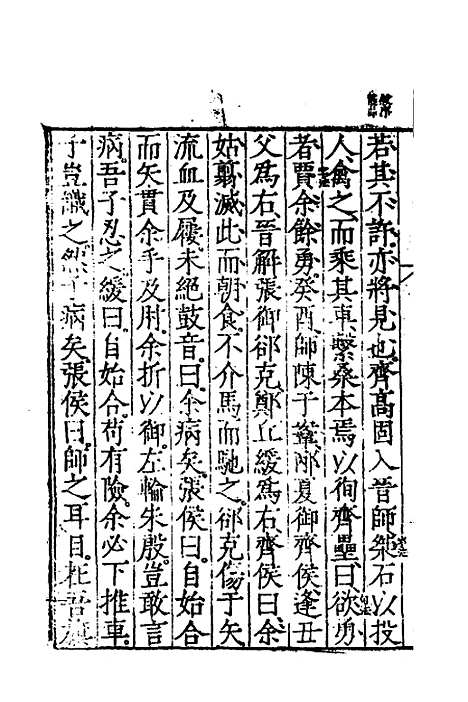 若其不許、亦將見也、齊高固入晉師、桀石以投
人、禽之、而乘其車、繫桑本焉、以徇齊壘、曰、欲勇
者、賈余餘勇。癸酉、師陳于鞌、邴夏御齊侯、逢丑
父爲右、晉解張御郤克、鄭丘緩爲右、齊侯曰、余
姑翦滅此而朝食。不介馬而馳之、郤克傷于矢、
流血及屨、未絕鼓音、曰、余病矣、張侯曰、自始合、
而矢貫余手及肘、余折以御、左輪朱殷、豈敢言
病、吾子忍之、緩曰、自始合、苟有險、余必下推車、
子豈識之、然子病矣、張侯曰、師之耳目、在吾旗